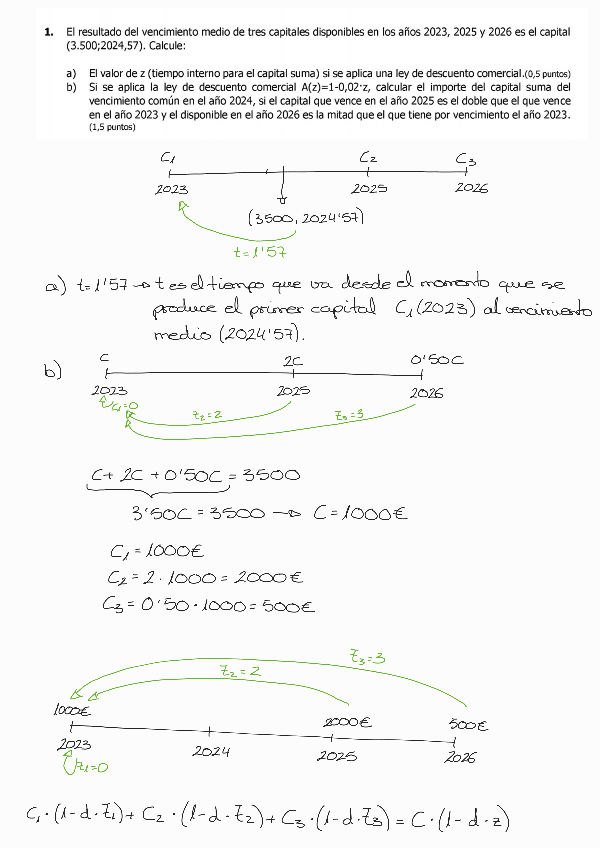 1. El resultado del vencimiento medio de tres capitales disponibles en los años 2023, 2025 y 2026 es el capital
(3.500;2024,57). Calcule:
a) El valor de z (tiempo interno para el capital suma) si se aplica una ley de descuento comercial.(0,5 puntos)
b) Si se aplica la ley de descuento comercial A(z)=1-0,02·z, calcular el importe del capital suma del
vencimiento común en el año 2024, si el capital que vence en el año 2025 es el doble que el que vence
en el año 2023 y el disponible en el año 2026 es la mitad que el que tiene por vencimiento el año 2023.
(1,5 puntos)
C₁ C₂ C₃
2023 2025 2026
(3500, 2024'57)
t=1'57
a) t=1'57 → t es el tiempo que va desde el momento que se
produce el primer capital C₁(2023) al vencimiento
medio (2024'57).
b) C 2C 0'50C
2023 2025 2026
z₁=0 z₂=2 z₃=3
C+ 2C +0'50C = 3500
3'50C = 3500 → C = 1000€
C₁ = 1000€
C₂ = 2 · 1000 = 2000€
C₃ = 0'50 · 1000 = 500€
z₃=3
z₂=2
1000€ 2000€ 500€
2023 2024 2025 2026
z₁=0
C₁ · (1-d·z₁)+ C₂ · (1-d·z₂)+ C₃ · (1-d·z₃) = C · (1-d·z)